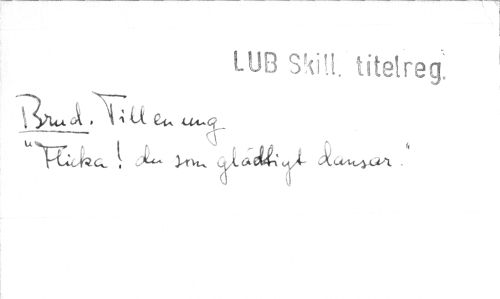 LUB Skill. titelreg.
Brud. Till en ung
"Flicka! du som gladtligt dansar."